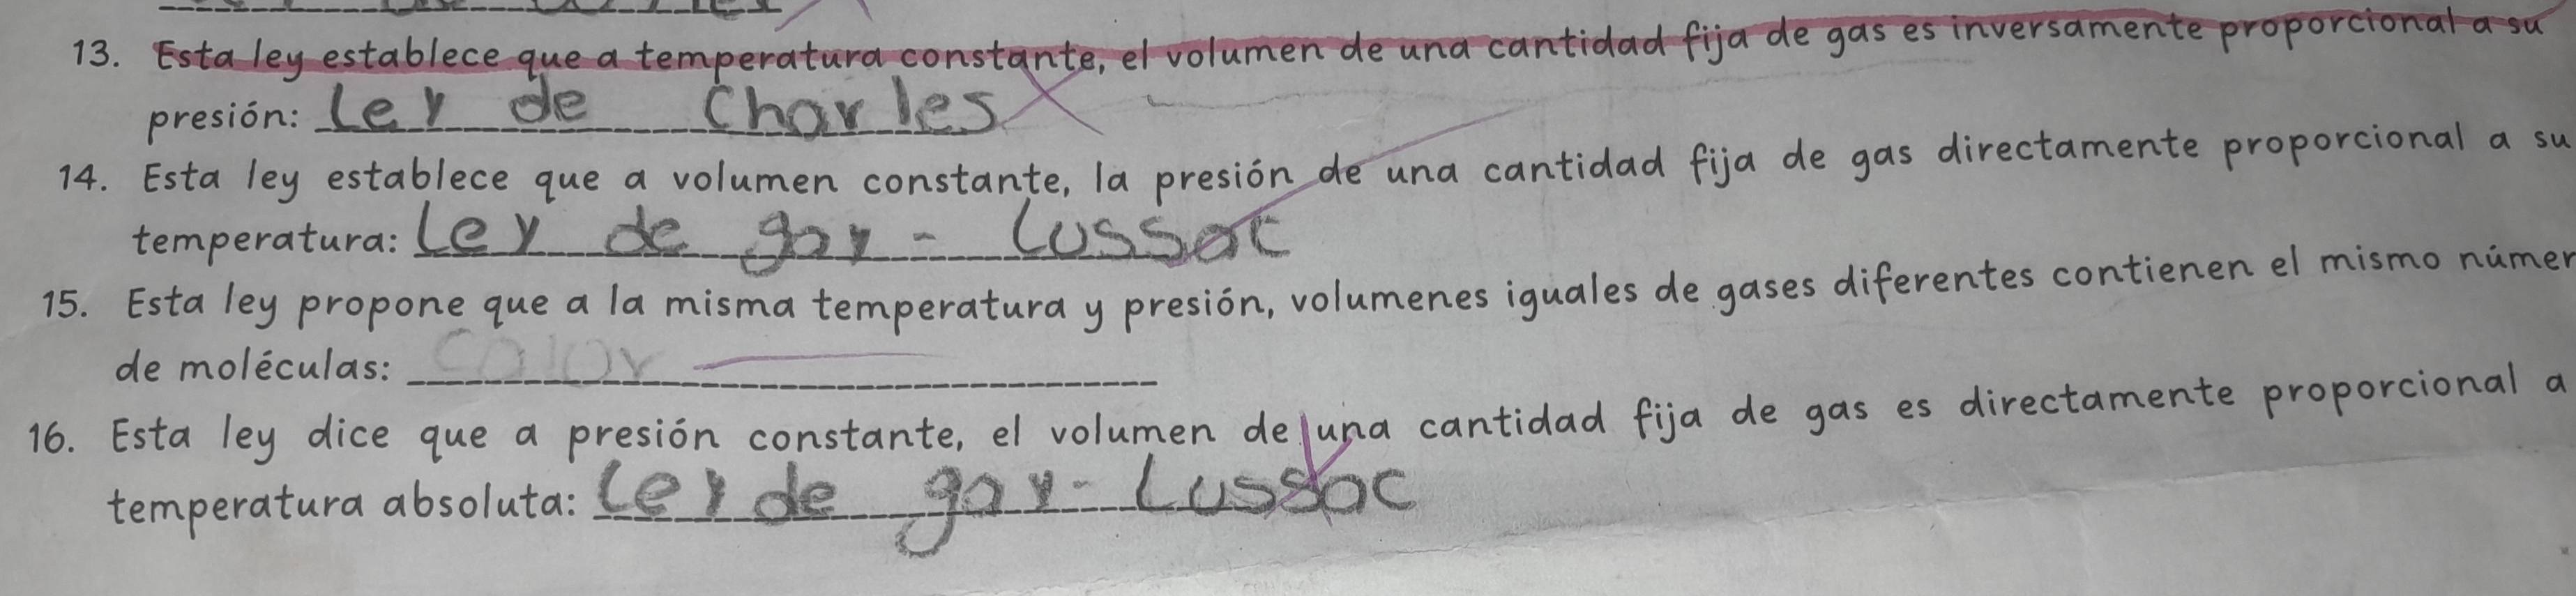 13. Esta ley establece que a temperatura constante, el volumen de una cantidad fija de gas es inversamente proporcional a su
presión: Ley de Charles
14. Esta ley establece que a volumen constante, la presión de una cantidad fija de gas directamente proporcional a su
temperatura: Ley de gay - Lussac
15. Esta ley propone que a la misma temperatura y presión, volumenes iguales de gases diferentes contienen el mismo númer
de moléculas: Calor
16. Esta ley dice que a presión constante, el volumen de una cantidad fija de gas es directamente proporcional a
temperatura absoluta: Ley de gay - Lussac